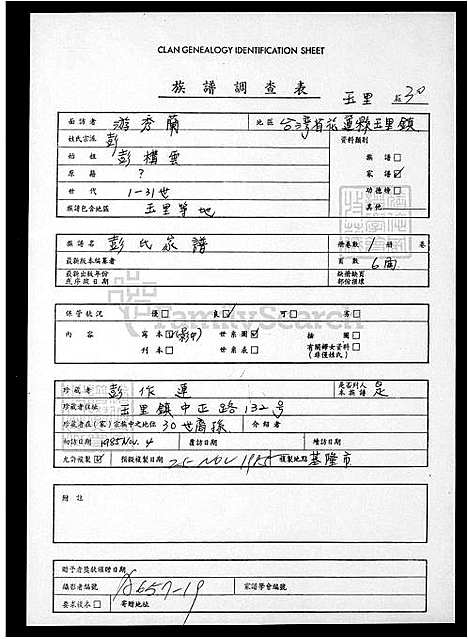 CLAN GENEALOGY IDENTIFICATION SHEET
族譜調查表
玉里 30
面訪者 游秀蘭 地區 台灣省花蓮縣玉里鎮
姓氏宗派 彭 資料類別
始祖 彭構雲 族譜□
原籍 ? 家譜☑
世代 1-31世 功德榜□
族譜包含地區 玉里等地 其他
族譜名 彭氏家譜 冊卷數 1 冊 卷
最新版本編纂者 頁數 6面
最新出版年份 缺冊缺頁
或序跋日期 部份損壞
保管狀況 優□ 良☑ 可□ 劣□
內容 寫本☑(影印) 世系圖☑ 插圖□
刊本□ 世系表□ 有關婦女資料□
(非僅姓氏)
FamilySearch
珍藏者 彭作連 是否列入本族譜 是
珍藏者住址 玉里鎮中正路132號
珍藏者在(家)宗族中之地位 30世裔孫 介紹者
初訪日期 1985 Nov. 4 覆訪日期 增訪日期
允許複製☑ 預擬複製日期 25-NOV 1985 複製地點 基隆市
附註
贈予者獎狀頒贈日期
攝影者編號 A657-19 家譜學會編號
要求後本□ 寄贈地址